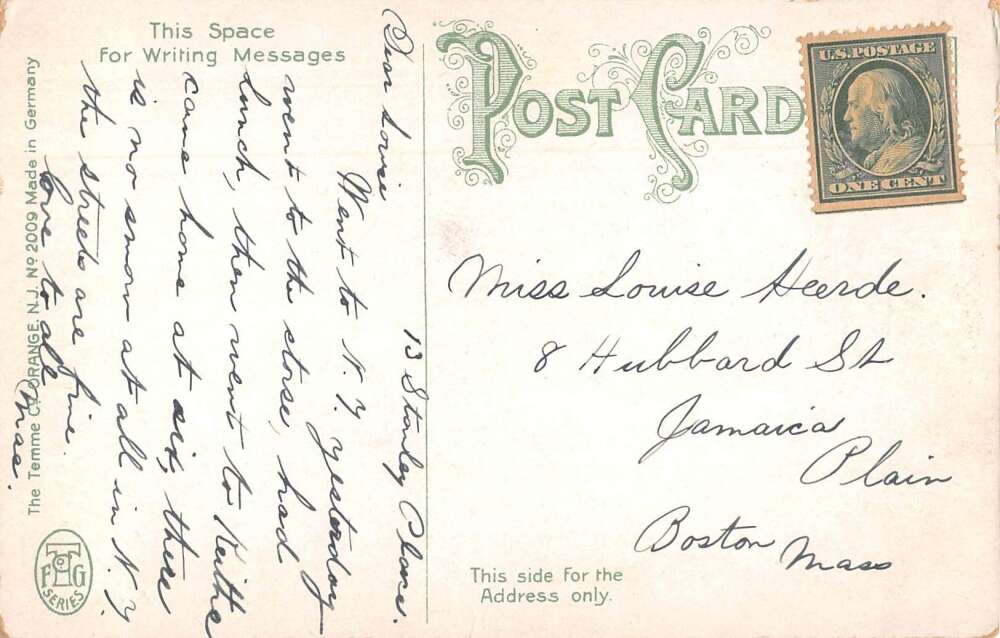 This Space
For Writing Messages
13 Stanley Place.
Dear Louise
Went to N.Y. yesterday
went to the store, had
lunch, then went to Keiths
came home at six, there
is no snow at all in N.Y.
the streets are fine.
love to all
Mae.
The Temme Co. ORANGE, N.J. No 2009 Made in Germany
TFG
SERIES
POST CARD
U.S. POSTAGE
ONE CENT
Miss Louise Heerde.
8 Hubbard St
Jamaica
Plain
Boston
Mass
This side for the
Address only.